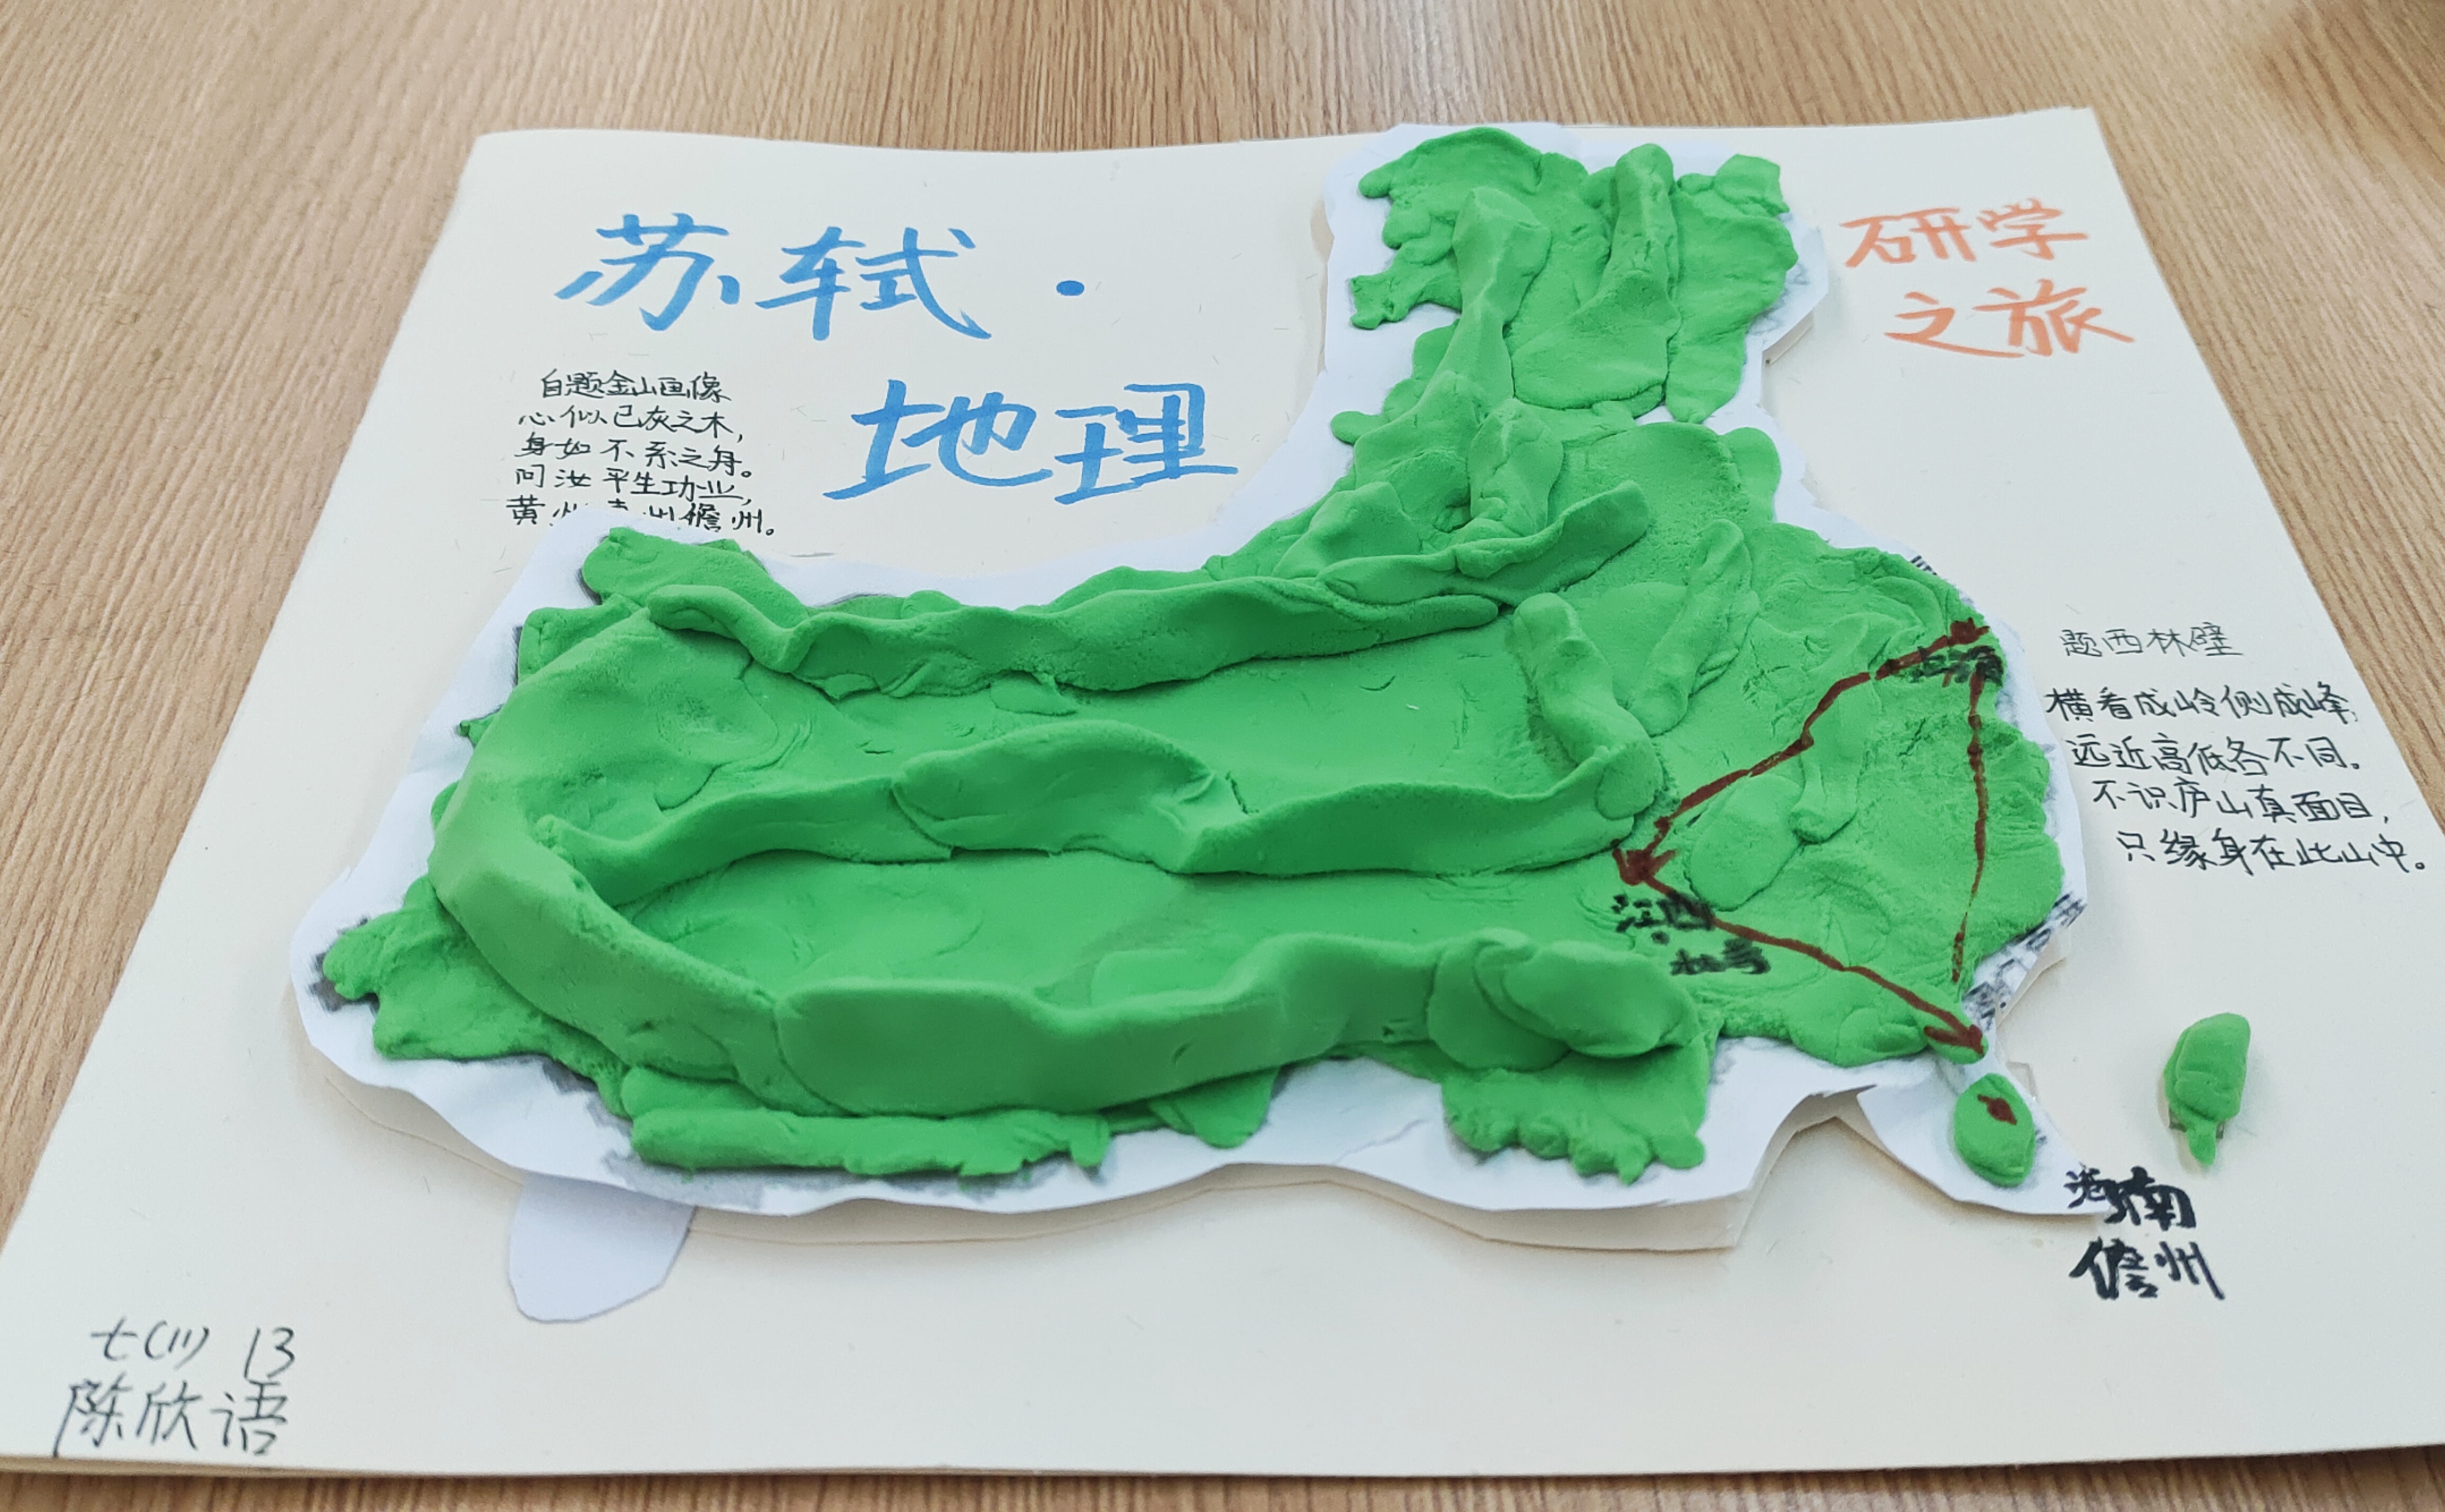 苏轼·
地理
研学
之旅
自题金山画像
心似已灰之木，
身如不系之舟。
问汝平生功业，
黄州儋州。
题西林壁
横看成岭侧成峰，
远近高低各不同。
不识庐山真面目，
只缘身在此山中。
江西
海南
儋州
七(11) 13
陈欣语